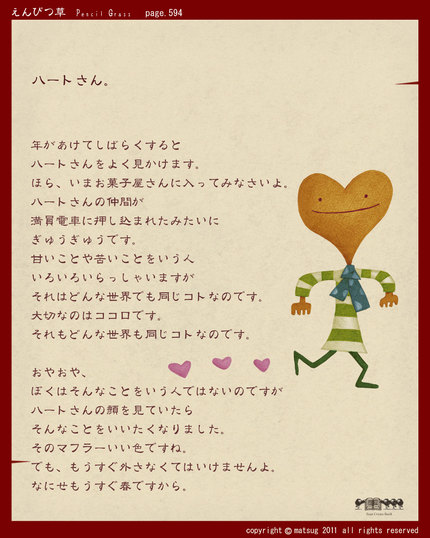 えんぴつ草 Pencil Grass page.594
ハートさん。
年があけてしばらくすると
ハートさんをよく見かけます。
ほら、いまお菓子屋さんに入ってみなさいよ。
ハートさんの仲間が
満員電車に押し込まれたみたいに
ぎゅうぎゅうです。
甘いことや苦いことをいう人
いろいろいらっしゃいますが
それはどんな世界でも同じコトなのです。
大切なのはココロです。
それもどんな世界も同じコトなのです。
おやおや、
ぼくはそんなことをいう人ではないのですが
ハートさんの顔を見ていたら
そんなことをいいたくなりました。
そのマフラーいい色ですね。
でも、もうすぐ外さなくてはいけませんよ。
なにせもうすぐ春ですから。
copyright © matsug 2011 all rights reserved